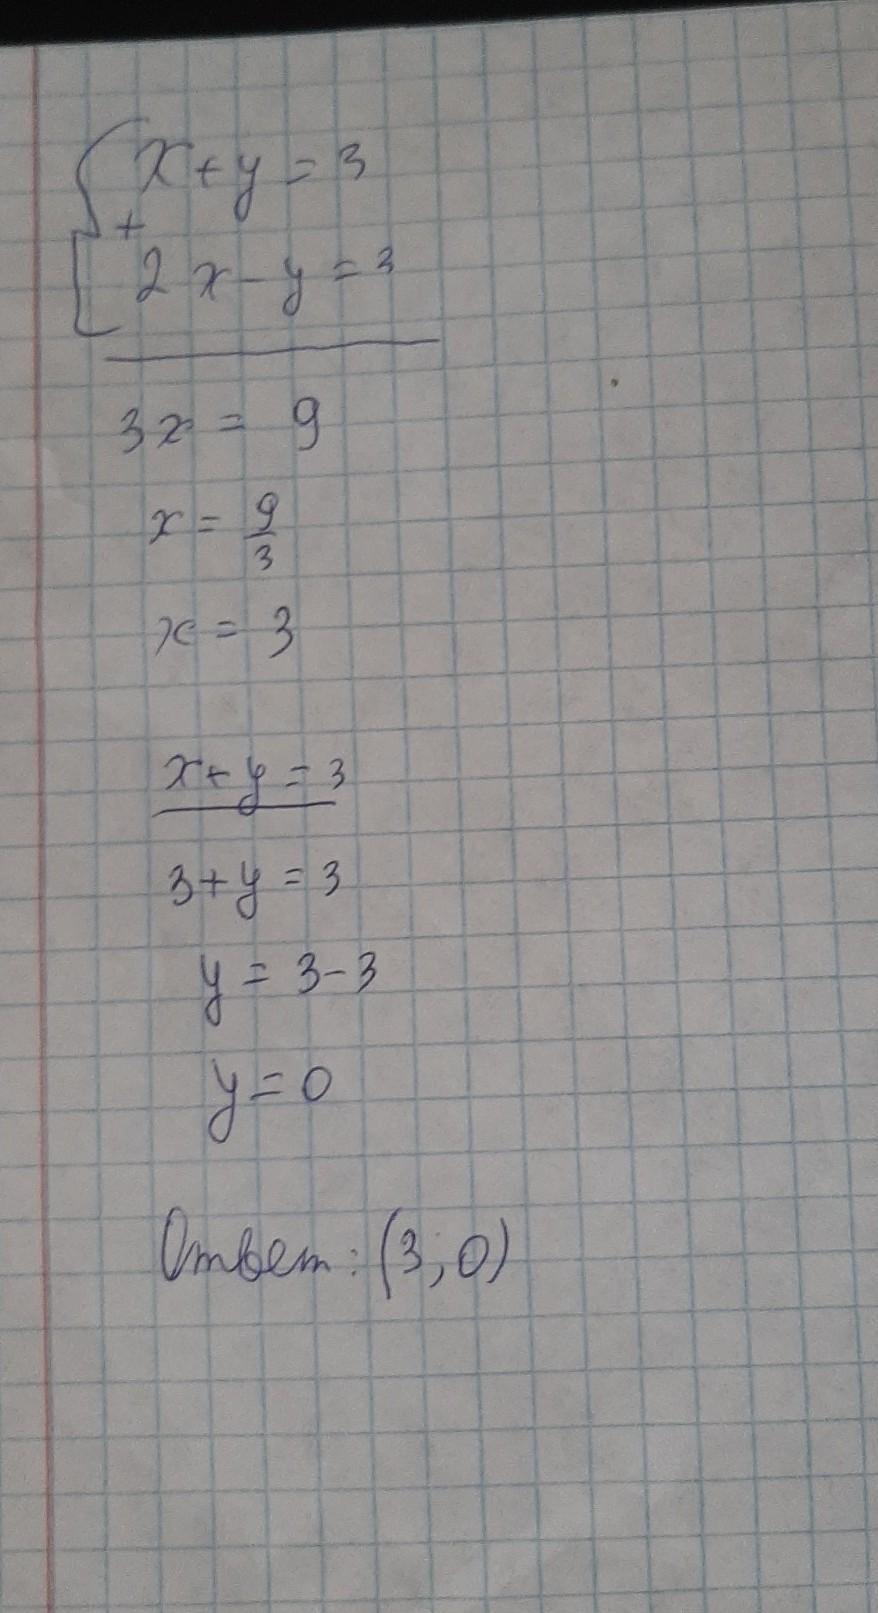 x+y=3
+
2x-y=3
3x=9
x=9/3
x=3
x+y=3
3+y=3
y=3-3
y=0
Ответ: (3;0)